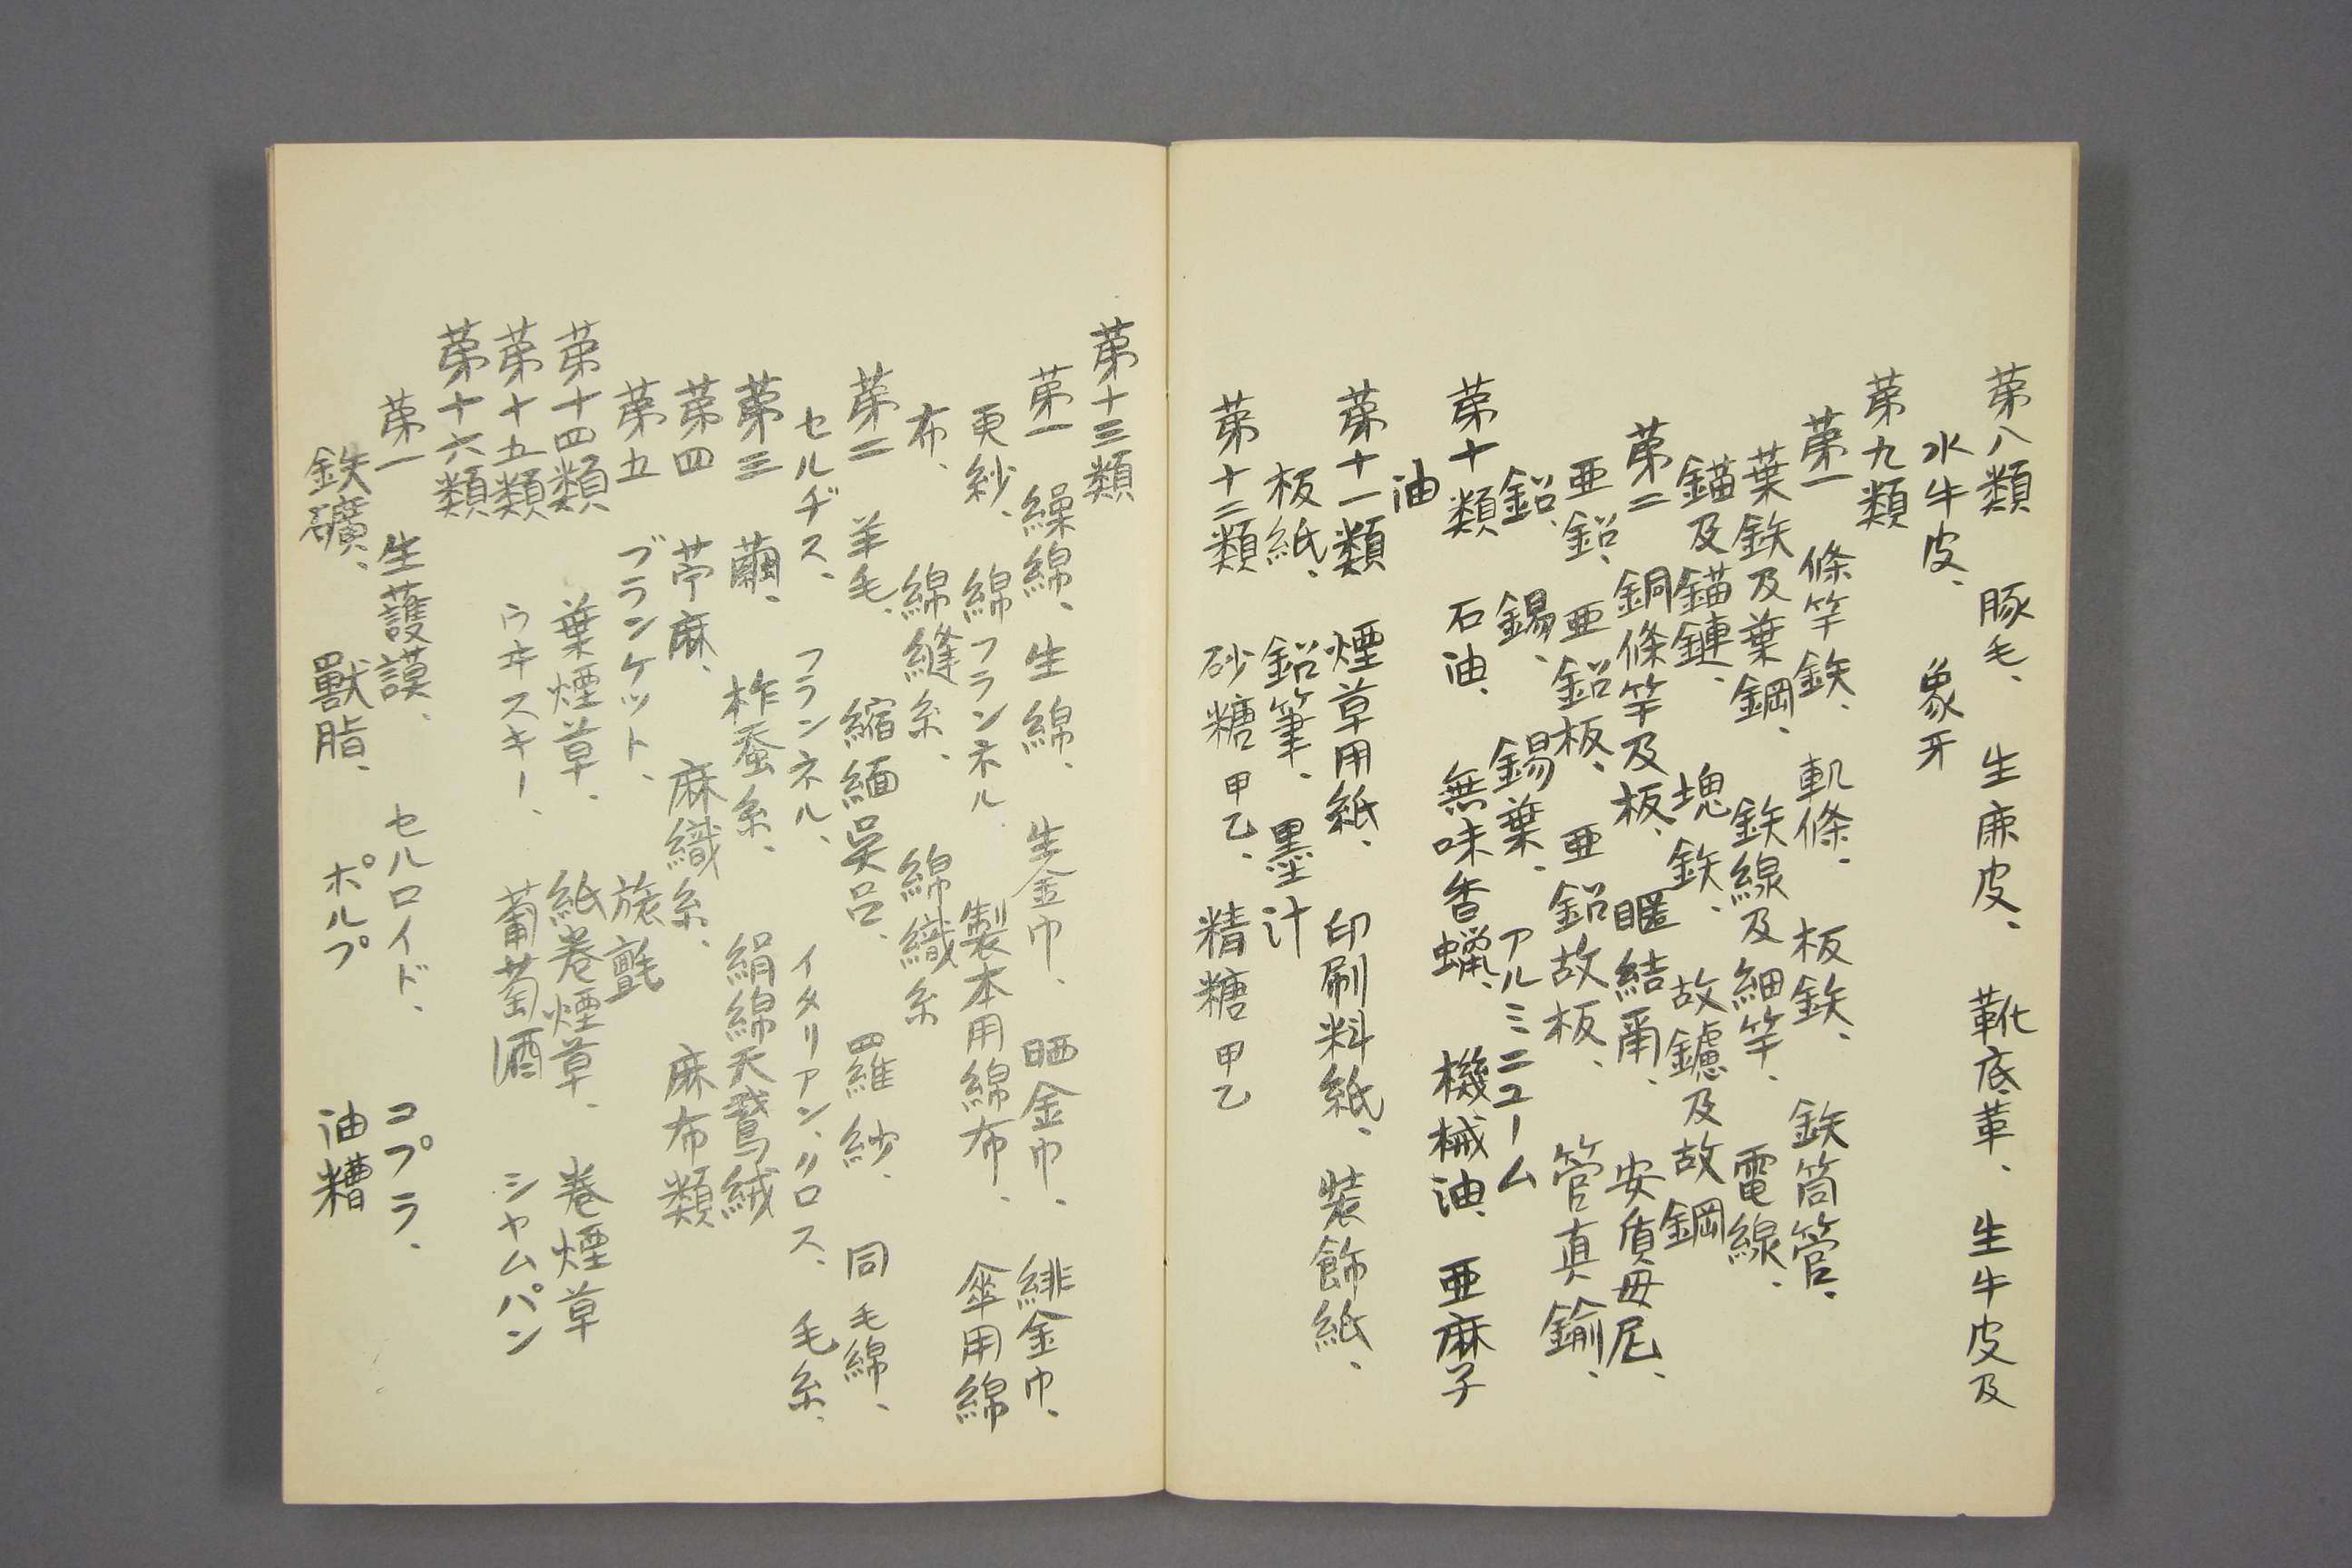 第八類　豚毛、　生麻皮、　靴底革、　生牛皮及
水牛皮、　象牙
第九類
第一　條竿鉄、　軌條、　板鉄、　鉄筒管、
葉鉄及葉鋼、　鉄線及細竿、　電線、
錨及錨鏈、　塊鉄、　故鑢及故鋼
第二　銅條竿及板、　暱結甬、　安質毋尼、
亜鉛、　亜鉛板、　亜鉛故板、　管真鍮、
鉛、　錫、　錫葉、　アルミニューム
第十類　石油、　無味香蠟、　機械油、　亜麻子
油
第十一類　煙草用紙、　印刷料紙、　装飾紙、
板紙、　鉛筆、　墨汁
第十二類　砂糖甲乙、　精糖甲乙
第十三類
第一　繰綿、　生綿、　生金巾、　晒金巾、　緋金巾、
更紗、　綿フランネル　製本用綿布、　傘用綿
布、　綿縫糸、　綿織糸
第二　羊毛、　縮緬呉呂、　羅紗、　同毛綿、
セルヂス、　フランネル、　イタリアン、〃クロス、　毛糸、
第三　繭、　柞蚕糸、　絹綿天鵞絨
第四　苧麻、　麻織糸、　麻布類
第五　ブランケット、　旅氈
第十四類　葉煙草、　紙巻煙草、　巻煙草
第十五類　ウヰスキー、　葡萄酒　シャムパン
第十六類
第一　生護謨、　セルロイド、　コプラ、
鉄礦、　獸脂、　ポルプ　油糟